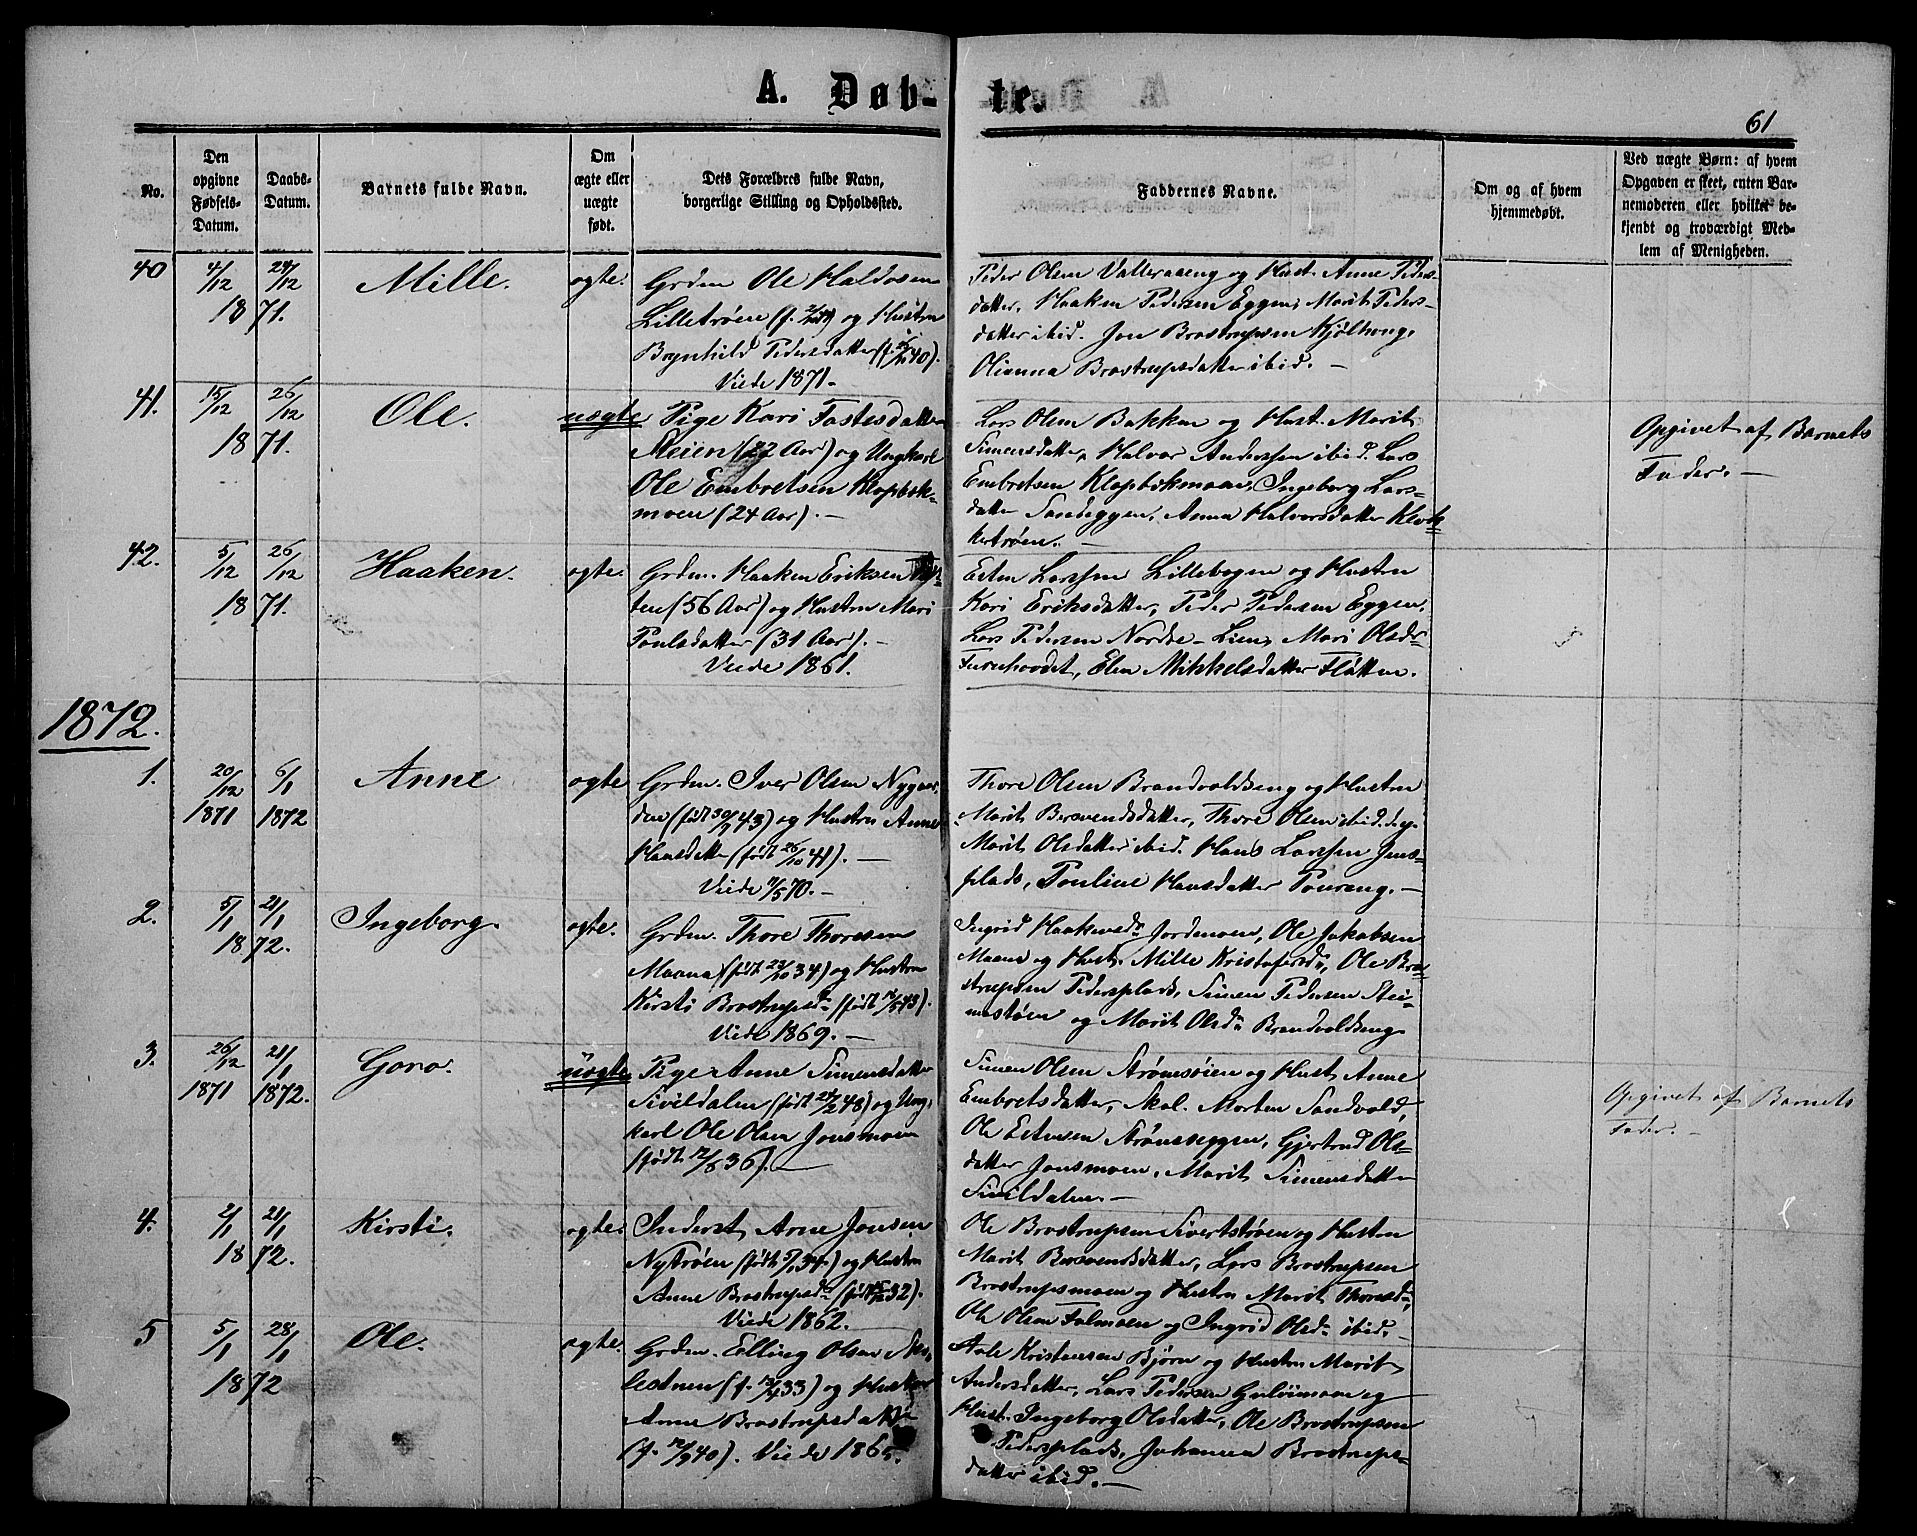 A. Døb-
te.
61
No.
Den opgivne Fødsels-Datum.
Daabs-Datum.
Barnets fulde Navn.
Om ægte eller uægte født.
Dets Forældres fulde Navn,
borgerlige Stilling og Opholdssted.
Faddernes Navne.
Om og af hvem
hjemmedøbt.
Ved uægte Børn: af hvem
Opgaven er skeet, enten Bar-
nemoderen eller hvilket be-
kjendt og troværdigt Med-
lem af Menigheden.
40
4/12 24/12
1871.
Mille.
ægte.
Grdm Ole Haldosen
Lilletrøen (f. ) og Hustru
Brynhild Pedersdatter (f. 40).
Viede 1871.
Peder Olsen Valleraaeng og Hust. Anne Peders-
datter, Haaken Pedersen Eggen, Marit Peders-
datter ibid. Jon Brostrupsen Kjøltong,
Olianna Brostrupsdatter ibid. —
41.
15/12 26/12
1871.
Ole.
uægte
Pige Kari Tostesdatter
Meien (22 Aar) og Ungkarl
Ole Embretsen Klopbæk-
moen (24 Aar). —
Lars Olsen Bakken og Hust. Marit
Simensdatter, Halvor Anderssen ibid. Lars
Embretsen Klopbækmoen, Ingeborg Lars-
datter Sandeggen, Anna Halvorsdatter Klok-
kertrøen. —
Opgivet af Barnets
Fader. —
42.
5/12 26/12
1871.
Haaken.
ægte.
Grdm. Haaken Eriksen
ten (56 Aar) og Hustru Mari
Poulsdatter (31 Aar). —
Viede 1861.
Esten Larssen Lillebogen og Hustru
Kari Eriksdatter, Peder Pedersen Eggen,
Lars Pedersen Nordre-Lien, Mari Olsdr
Furuhovdet, Elen Mikkelsdatter Fløtten.
1872.
1.
20/12 6/1
1871 1872
Anne
ægte
Grdm. Iver Olsen Nygaar-
den (født 30/9 43) og Hustru Anne
Hansdatter (født 26/10 41). —
Viede 11/5 70. —
Thore Olsen Brandvoldseng og Hustru
Marit Bersvendsdatter, Thore Olsen ibid.
Marit Olsdatter ibid. Hans Larssen Jens-
plads, Pouline Hansdatter Poureng. —
2.
5/1 21/1
1872.
Ingeborg.
ægte.
Grdm. Thore Thoresen
Maana (født 23/10 34) og Hustru
Kirsti Brostrupsdr (født 43).
Viede 1869. —
Ingrid Haakensdr Jordmoen, Ole Jakobsen
Moene og Hust. Mille Kristofersdr, Ole Bros-
trupsen Pedersplads, Simen Pedersen Stei-
mostøen og Marit Olsdr Brandvoldseng.
3.
26/12 21/1
1871 1872.
Goro.
uægte
Pige Anne Simensdatter
Sivildalen (født 48) og Ung-
karl Ole Olsen Jonsmoen
(født 12/8 36). —
Simen Olsen Strømsøien og Hust. Anne
Embretsdatter, Skol. Morten Sandvold,
Ole Estensen Strømseggen, Gjertrud Ols-
datter Jonsmoen, Marit Simensdatter
Sivildalen. —
Opgivet af Barnets
Fader. —
4.
2/1 21/1
1872.
Kirsti.
ægte.
Inderst Arne Jonsen
Nytrøen (født 5/1 34) og Hustru
Anne Brostrupsdr (født 32).
Viede 1862.
Ole Brostrupsen Sivertstrøen og Hustru
Marit Bersvendsdatter, Lars Brostrupsen
Brostrupsmoen og Hustru Marit Thoresdr,
Ole Olsen Folmoen og Ingrid Olsdr ibid. —
5
5/1 28/1
1872
Ole.
ægte.
Grdm. Elling Olsen
(f. 12/4 33) og Hustru
Anne Brostrupsdatter
(f. 12/9 40). Viede 1865.
Aale Kristensen Bjørn og Hustru Marit
Andersdatter, Lars Pedersen Guløimoen og
Hust. Ingeborg Olsdatter, Ole Brostrupsen
Pedersplads, Johanna Brostrups-
datter ibid. —